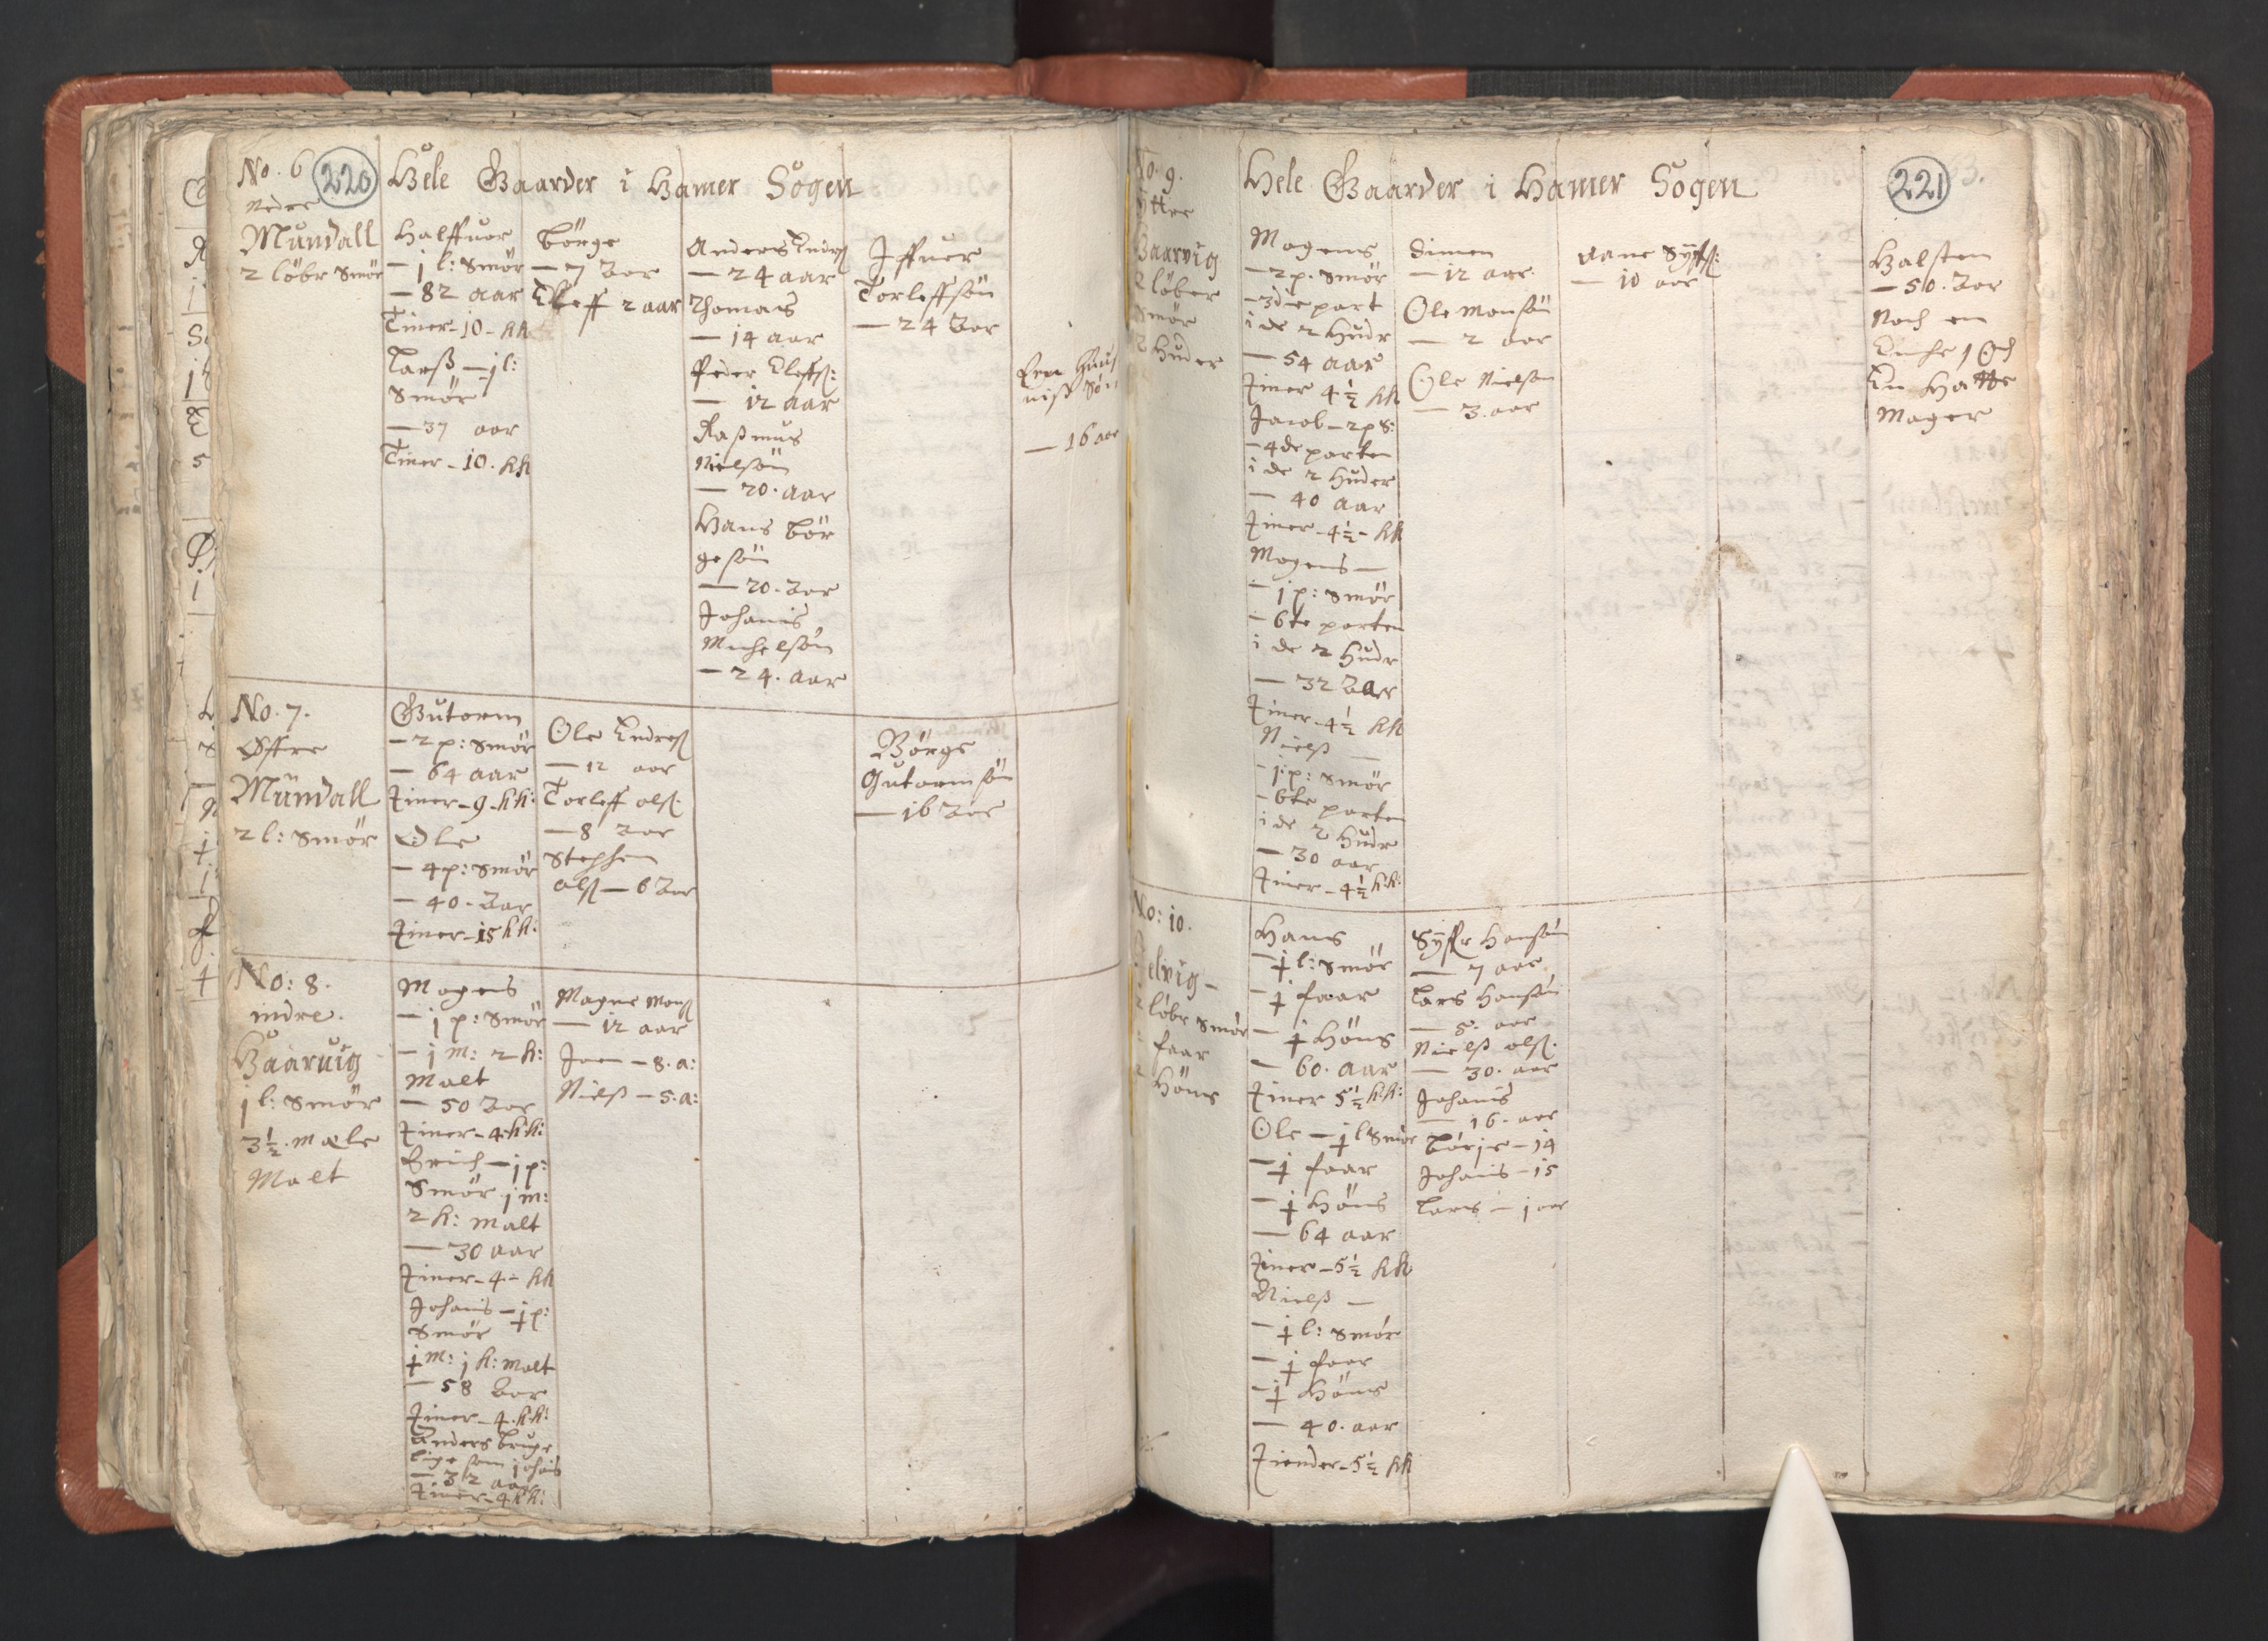 No. 6
220
Hele Gaarder i Hamer Sogen
Nedre
Mundall
2 löbr Smör
Halffuor
— j l: Smör
— 82 aar
Tiner - 10 - kk
Larß — j l:
Smör
— 37 aar
Tiner - 10. kk
Börge
— 7 Aar
Eleff 2 aar
Anders Endrß
— 24 aar
Thomas
— 14 aar
Peder Eleffß:
— 12 aar
Raßmus
Nielsön
— 20. aar
Hans Bör
gesön
— 20. Aar
Johanis
Michelsön
— 24. aar
Iffuer
Torleffsön
— 24 Aar
Een Huus
— 16 aar
No. 7.
Øffre
Mundall
2 l: Smör
Gutorm
— 2 p: Smör
— 64 aar
Tiner - 9 - kk:
Ole
— 4 p: Smör
— 40. Aar
Tiner - 15 kk:
Ole Endreß
— 12 aar
Torleff olß.
— 8 Aar
Stephen
olß — 6 Aar
Börge
Gutormsön
— 16 Aar
No: 8.
indre.
Haaruig
j l: Smör
3½. Mæle
Malt
Mogens
— j p: Smör
— j m: 2 k:
Malt
— 50 Aar
Tiner - 4. kk:
Erich — j p:
Smör j m:
2 k: Malt
— 30 aar
Tiner - 4 - kk
Johanis — ½ p:
Smör
½ m: j k: Malt
— 58 Aar
Tiner - 4. kk:
Anders bruger
lige som johanis
— 32 aar
Tiner - 4 kk:
Magne Monß
— 12 aar
Joen — 8. a:
Nielß — 5. a:
No. 9.
Yttre
Haarvig
2 löber
Smör
2 Huder
Hele Gaarder i Hamer Sogen
221
Mogens
— 2 p. Smör
— 3die part
i de 2 Hudr
— 54 aar
Tiner 4½ kk
Jacob — 2 p S:
— 4de parten
i de 2 Huder
— 40 aar
Tiner - 4½ - kk
Mogens —
— 1 p: Smör
— 6te parten
i de 2 Hudr
— 32 Aar
Tiner - 4½ kk
Nielß —
— j p: Smör
— 6te parten
i de 2 Hudr
— 30 aar
Tiner - 4½ kk:
Simen
— 12 aar
Ole Monsön
— 2 aar
Ole Nielsön
— 3. aar
— 10 aar
Halsten
— 50. Aar
Noch en
En Hatte
Mager
No: 10.
Helvig —
2 löbr Smör
faar
Höns
Hans
— ½ l: Smör
— ½ faar
— ½ Höns
— 60. aar
Tiner 5½ kk:
Ole — ½ l Smör
— ½ faar
— ½ Höns
— 64 aar
Tiner - 5½ kk
Nielß —
— ½ l: Smör
— ½ faar
— ½ Höns
— 40. aar
Tiender - 5½ kk
Syffr Hansön
— 7 aar
Lars Hansön
— 5. aar
Nielß olß.
— 30. aar
Johanis
— 16. aar
Börje — 14
Johanis — 15
Lars — j aar